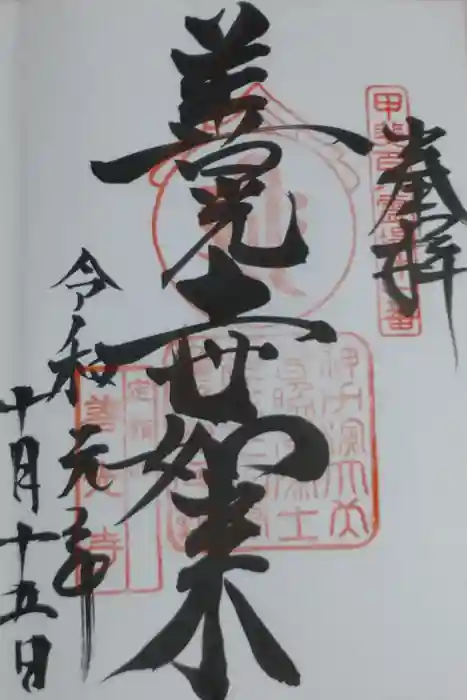 奉拝
甲斐百霊場第一番
善光寺如来
令和元年
十月十五日
定額山
善光寺